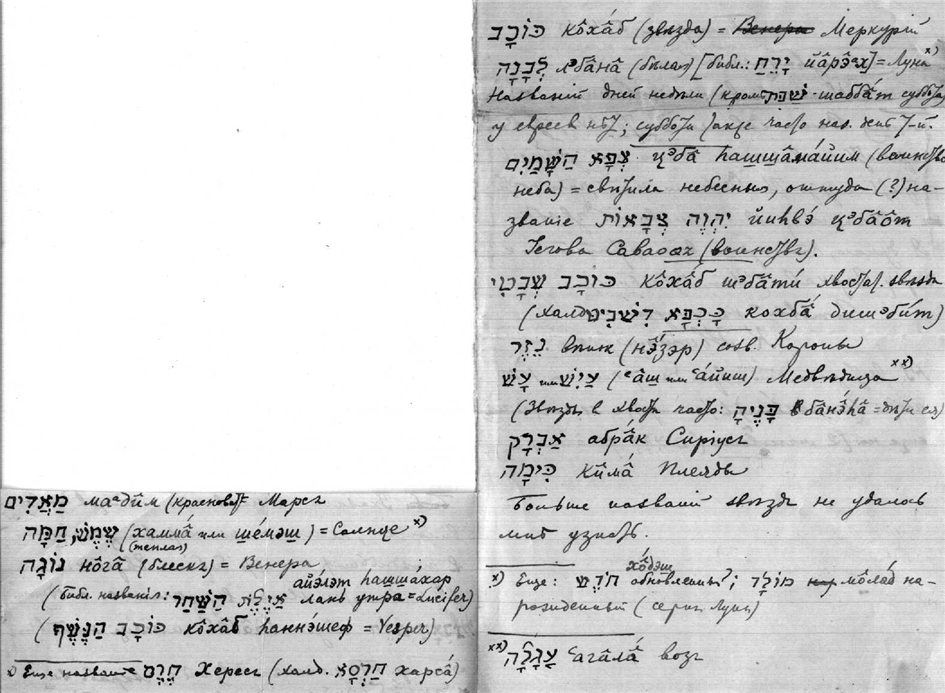 מַאֲדִים маᵃдӣм (красноват) = Марсъ
שֶׁמֶשׁ, חַמָּה (хаммâ или шéмэш) = Солнце ˣ⁾
(теплая)
נוֹגָה нôгâ (блескъ) = Венера
айэлэт hашшáхар
(библ. названія: אַיֶּלֶת הַשַּׁחַר лань утра = Lucifer)
(כּוֹכָב הַנֶּשֶׁף кôхâб hаннэшеф = Vesper)
ˣ⁾ Еще название חֶרֶס Хересъ (халд. חַרְסָא харсâ)
כּוֹכָב кôхâб (звѣзда) = Венера Меркурій
לְבָנָה лᵊбâнâ (бѣлая) [библ.: יָרֵחַ йâрэᵃх] = Луна ˣ⁾
Названій дней недѣли (кромѣ שַׁבָּת - шаббáт суббота)
у евреев нѣт; суббота также часто наз. день 7-й.
צְבָא הַשָּׁמַיִם цᵊбâ hашшâмáйим (воинство
неба) = свѣтила небесныя, откуда (?) на-
званіе יְהֹוֶה צְבָאוֹת йиhвэ́ цᵊбâôт
Іегова Саваоѳъ (воинствъ).
כּוֹכָב שְׁבָטִי кôхâб шᵊбâтú хвостат. звѣзда
(халд. כָּכְבָא דִּשְׁבִיט кохбâ дишᵊбúт)
נֵזֶר вѣнок (нэ́зэр) созв. Короны
עָשׁ или עַיִשׁ (ᶜâш или ᶜáйиш) Медвѣдица ˣˣ⁾
(Звѣзды в хвостѣ часто: בָּנֶיהָ бâнэ́hâ = дѣти ея)
אַבְרָק абрáк Сиріусъ
כִּימָה кӣмâ Плеяды
Больше названій звѣздъ не удалось
мнѣ узнать.
хôдэш
ˣ⁾ Еще: חֹדֶשׁ обновленный; מוֹלָד мôлâд на-
рожденный (серпъ Луны)
ˣˣ⁾ עֲגָלָה ᶜагâлâ возъ